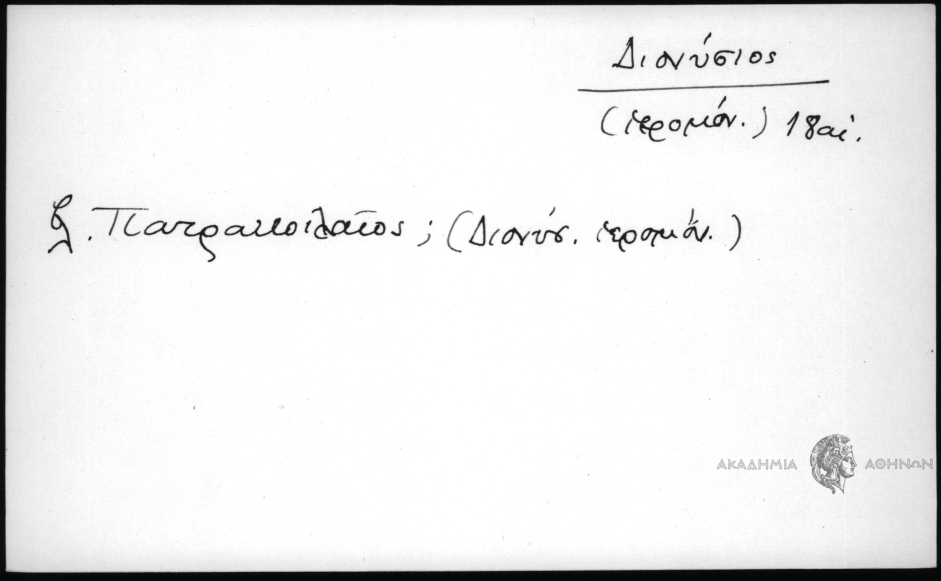 Διονύσιος
(ἱερομόν.) 18 αἰ.
βλ. Πατρακοιλαῖος ; (Διονύσ. ἱερομόν.)
ΑΚΑΔΗΜΙΑ ΑΘΗΝΩΝ